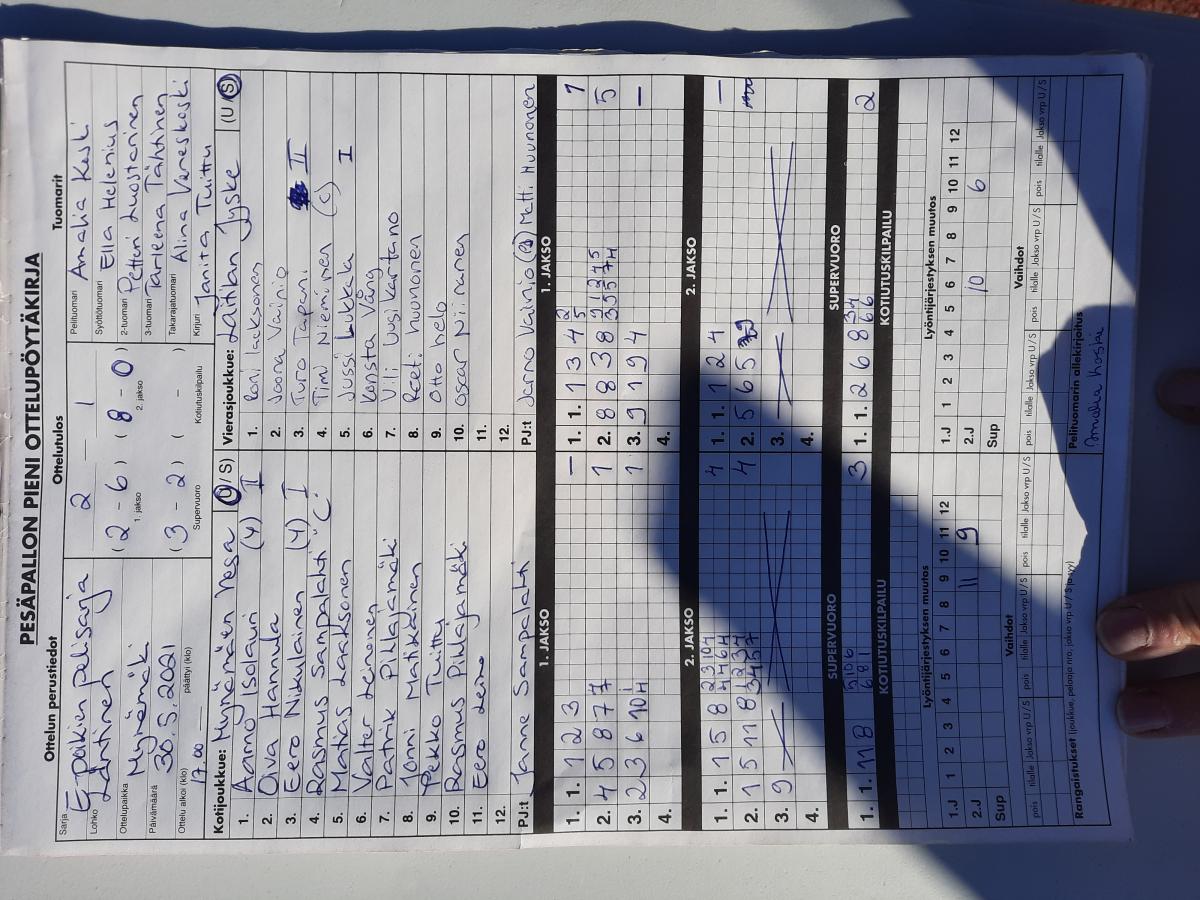 PESÄPALLON PIENI OTTELUPÖYTÄKIRJA
Ottelun perustiedot
Sarja E-poikien pelisarja
Lohko Läntinen
Ottelupaikka Mynämäki
Päivämäärä 30.5.2021
Ottelu alkoi (klo) 17.00 päättyi (klo)
Ottelutulos
2 – 1
(2 - 6) (8 - 0)
1. jakso 2. jakso
(3 - 2) ( - )
Supervuoro Kotiutuskilpailu
Tuomarit
Pelituomari Amalia Koski
Syöttötuomari Ella Helenius
2-tuomari Petteri Luostarinen
3-tuomari Tarleena Tähtinen
Takarajatuomari Alina Vareskoski
Kirjuri Janita Tuittu
Kotijoukkue: Mynämäen Vesa (U / S)
1. Aarno Isolauri (4) II
2. Oiva Hannula
3. Eero Nikulainen (4) I
4. Rasmus Sampalahti "C"
5. Matias Laaksonen
6. Valter Leinonen
7. Patrik Pihlajamäki
8. Jonni Matikainen
9. Pekko Tuittu
10. Rasmus Pihlajamäki
11. Eero Lemo
12.
PJ:t Janne Sampalahti
Vierasjoukkue: Laitilan Jyske (U / S)
1. Roni Laaksonen
2. Joona Vainio
3. Turo Tapani II
4. Timi Nieminen (c)
5. Jussi Lukkala I
6. Konsta Vång
7. Vili Uusikartano
8. Reeti Huunonen
9. Otto Helo
10. Oscar Niinanen
11.
12.
PJ:t Jarno Vainio Matti Huunonen
1. JAKSO
1. 1. 1 2 3 –
2. 4 5 8 7 7 1
3. 2 3 6 10 1
4.
1. JAKSO
1. 1. 1 3 4 1
2. 8 8 3 8 5
3. 9 1 9 4 –
4.
2. JAKSO
1. 1. 1 5 8 4
2. 1 5 11 8 4
3. 9
4.
2. JAKSO
1. 1. 1 2 4 –
2. 5 6 5
3.
4.
SUPERVUORO
1. 1. 11 8 3
SUPERVUORO
1. 1. 2 6 8 2
KOTIUTUSKILPAILU
KOTIUTUSKILPAILU
Lyöntijärjestyksen muutos
1.J 1 2 3 4 5 6 7 8 9 10 11 12
2.J 11 9
Sup
Vaihdot
pois tilalle Jakso vrp U / S pois tilalle Jakso vrp U / S pois tilalle Jakso vrp U / S
Lyöntijärjestyksen muutos
1.J 1 2 3 4 5 6 7 8 9 10 11 12
2.J 10 6
Sup
Vaihdot
pois tilalle Jakso vrp U / S pois tilalle Jakso vrp U / S pois tilalle Jakso vrp U / S
Rangaistukset (joukkue, pelaaja nro, jakso vrp U / S ja vyy)
Pelituomarin allekirjoitus
Amalia Koski